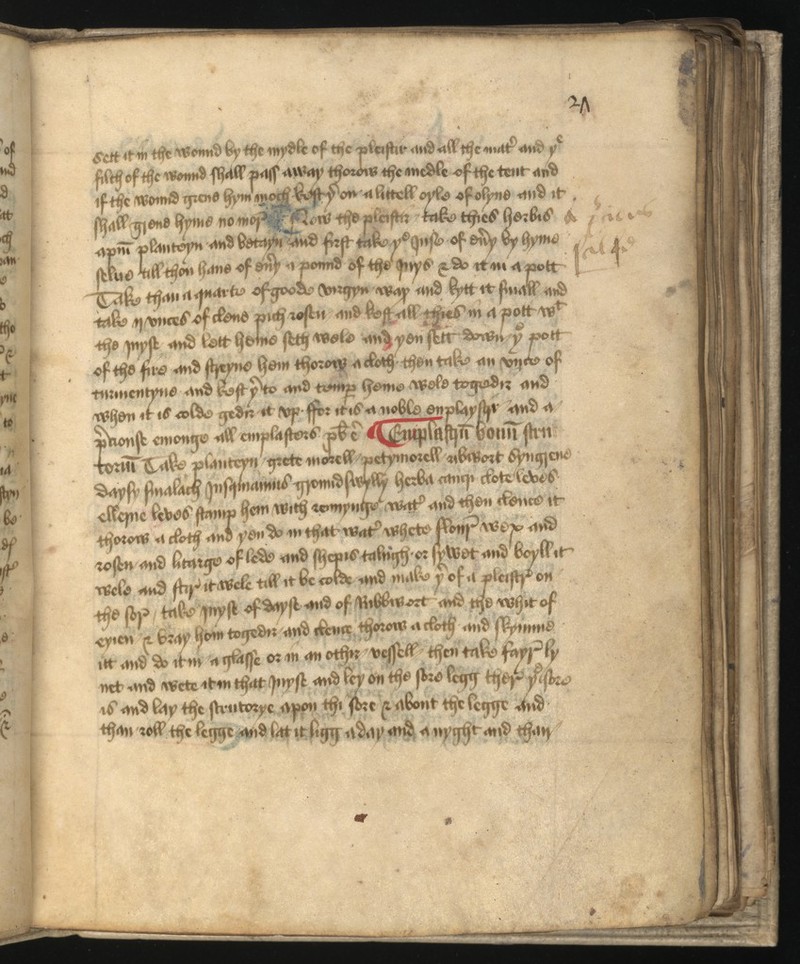 24
sett it in the wound by the mydle of the pleistir and all the mat' and yͤ
filth of the wound shall pass away thorow the medle of the tent and
if the wound greue hym moch kest yͬ on a littell oyle of olyue and it
shall greue hyme no morͬ Now the pleistir take thies herbis
apiū planteyn and betayn and first take yͤ Jusse of eūy by hyme
selue till thou haue of eūy a pound of the Juys & do it in a pott
Take than a quarte of goode virgyn wax and kytt it small and
take ij vnces of clene pich rosen and kest all thies in a pott wᵗ
the Juyse and lett heme seth wele and yen sett down yͤ pott
of the fire and streyne hem thorow a cloth then take an vnce of
turmentyne and kest yͬ to and temp heme wele togedir and
when it is colde gedir it vp ffor it is a noble enplaystyr and a
p̄ciouse emonge all emplasters Emplastrū bonū
Take planteyn grete morell petymorell ribwort syngrene
daysy smalach Jusquiamus groundswylly herba canqi clote leves
ellerne leves stamp hem with rennynge wat' and then clence it
thorow a cloth and yen do in that wat' whete flourͬ wex and
rosen and litarge of lede and shepis talugh or sywet and boyll it
wele and stirͬ it wele till it be colde and make yͬ of a pleistrͬ on
the sorͬ / take Juyse of dayse and of Ribbwort and the whit of
eyien & bray hem togedir and clence thorow a cloth and skymme
itt and do it in a glasse or in an othir vessell then take fayrͬ ly
net and wete it in that Juyse and ley on the sore legg therͬ yͤ sore
is and lay the strutorye apon thi sore & about the legge and
than roll the legge and lat it ligg a day and a nyght and than